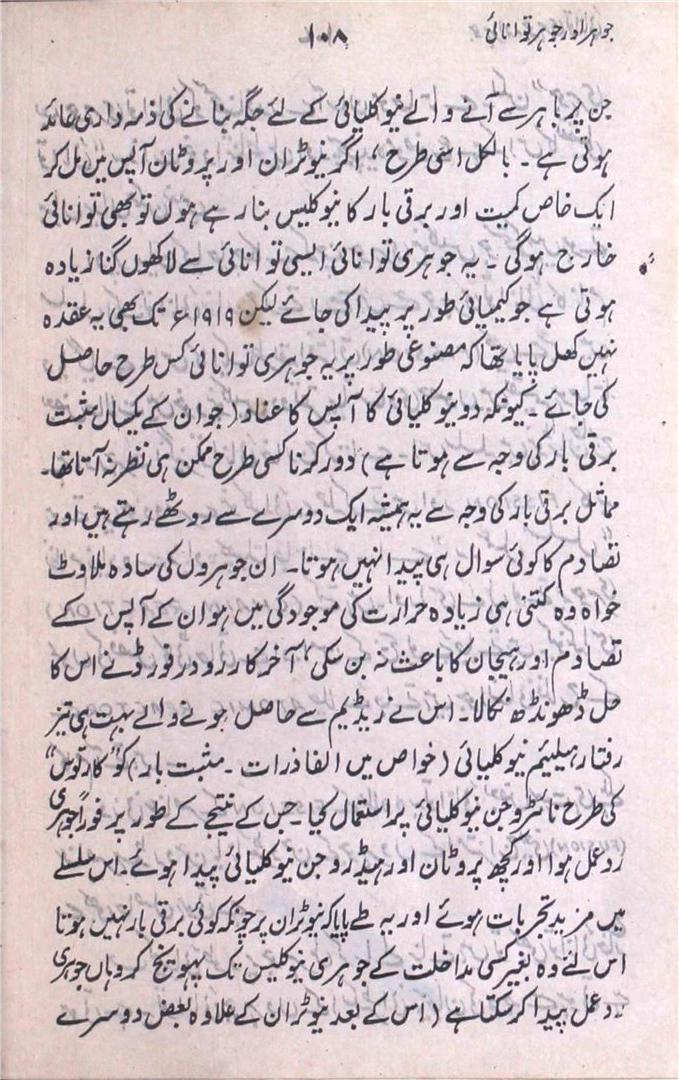 جوہر اور جوہر توانائی
۱۰۸
جن پر باہر سے آنے والے نیوکلیائی کے لئے جگہ بنانے کی ذمہ داری عائد
ہوتی ہے ۔ بالکل اسی طرح ، اگر نیوٹران اور پروٹان آپس میں مل کر
ایک خاص کمیت اور برقی بار کا نیوکلیس بنا رہے ہوں تو بھی توانائی
خارج ہوگی ۔ یہ جوہری توانائی ایسی توانائی سے لاکھوں گنا زیادہ
ہوتی ہے جو کیمیائی طور پر پیدا کی جائے لیکن ۱۹۱۹ء تک بھی یہ عقدہ
نہیں کھل پایا تھا کہ مصنوعی طور پر یہ جوہری توانائی کس طرح حاصل
کی جائے ۔ کیونکہ دو نیوکلیائی کا آپس کا عناد ( جو ان کے یکساں مثبت
برقی بار کی وجہ سے ہوتا ہے ) دور کرنا کسی طرح ممکن ہی نظر نہ آتا تھا۔
مماثل برقی بار کی وجہ سے یہ ہمیشہ ایک دوسرے سے روٹھے رہتے ہیں اور
تصادم کا کوئی سوال ہی پیدا نہیں ہوتا۔ ان جوہروں کی سادہ ملاوٹ
خواہ وہ کتنی ہی زیادہ حرارت کی موجودگی میں ہو ان کے آپس کے
تصادم اور ہیجان کا باعث نہ بن سکی ، آخر کار رودرفورڈ نے اس کا
حل ڈھونڈھ نکالا۔ اس نے ریڈیم سے حاصل ہونے والے بہت ہی تیز
رفتار ہیلیئم نیوکلیائی ( خواص میں الفا ذرات ۔ مثبت بار ) کو "کارتوس"
کی طرح نائٹروجن نیوکلیائی پر استعمال کیا ۔ جس کے نتیجے کے طور پر فوراً جوہری
ردعمل ہوا اور کچھ پروٹان اور ہیڈروجن نیوکلیائی پیدا ہوئے ۔ اس سلسلے
میں مزید تجربات ہوئے اور یہ طے پایا کہ نیوٹران پر چونکہ کوئی برقی بار نہیں ہوتا
اس لئے وہ بغیر کسی مداخلت کے جوہری نیوکلیس تک پہونچ کر وہاں جوہری
ردعمل پیدا کر سکتا ہے ( اس کے بعد نیوٹران کے علاوہ بعض دوسرے